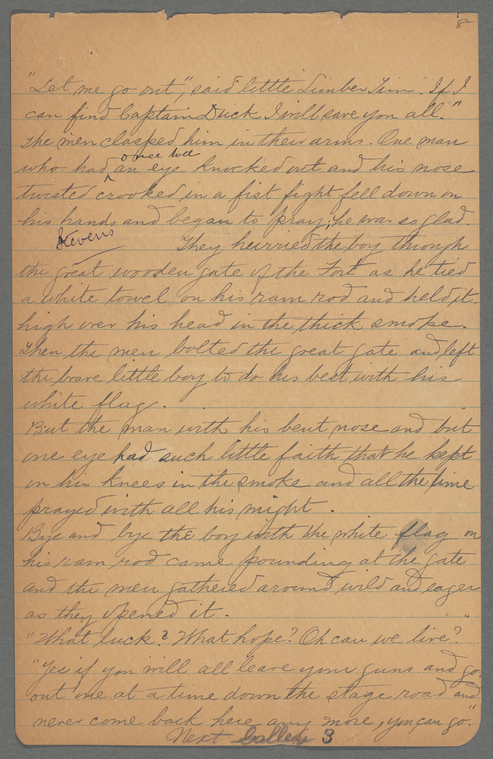 8
"Let me go out," said little Limber Jim. If I
can find Captain Duck I will save you all."
The men clasped him in their arms. One man
who had once had an eye knocked out and his nose
twisted crooked in a fist fight fell down on
his hands and began to pray; he was so glad.
Stevens
They hurried the boy through
the great wooden gate of the Fort as he tied
a white towel on his ram rod and held it
high over his head in the thick smoke.
Then the men bolted the great gate and left
the brave little boy to do his best with his
white flag.
But the man with his bent nose and but
one eye had such little faith that he kept
on his knees in the smoke and all the time
prayed with all his might.
Bye and bye the boy with the white flag on
his ram rod came pounding at the gate
and the men gathered around wild and eager
as they opened it.
"What luck? What hope? Oh can we live?"
"Yes if you will all leave your guns and go
out one at a time down the stage road and
never come back here any more, you can go."
Next Galley 3